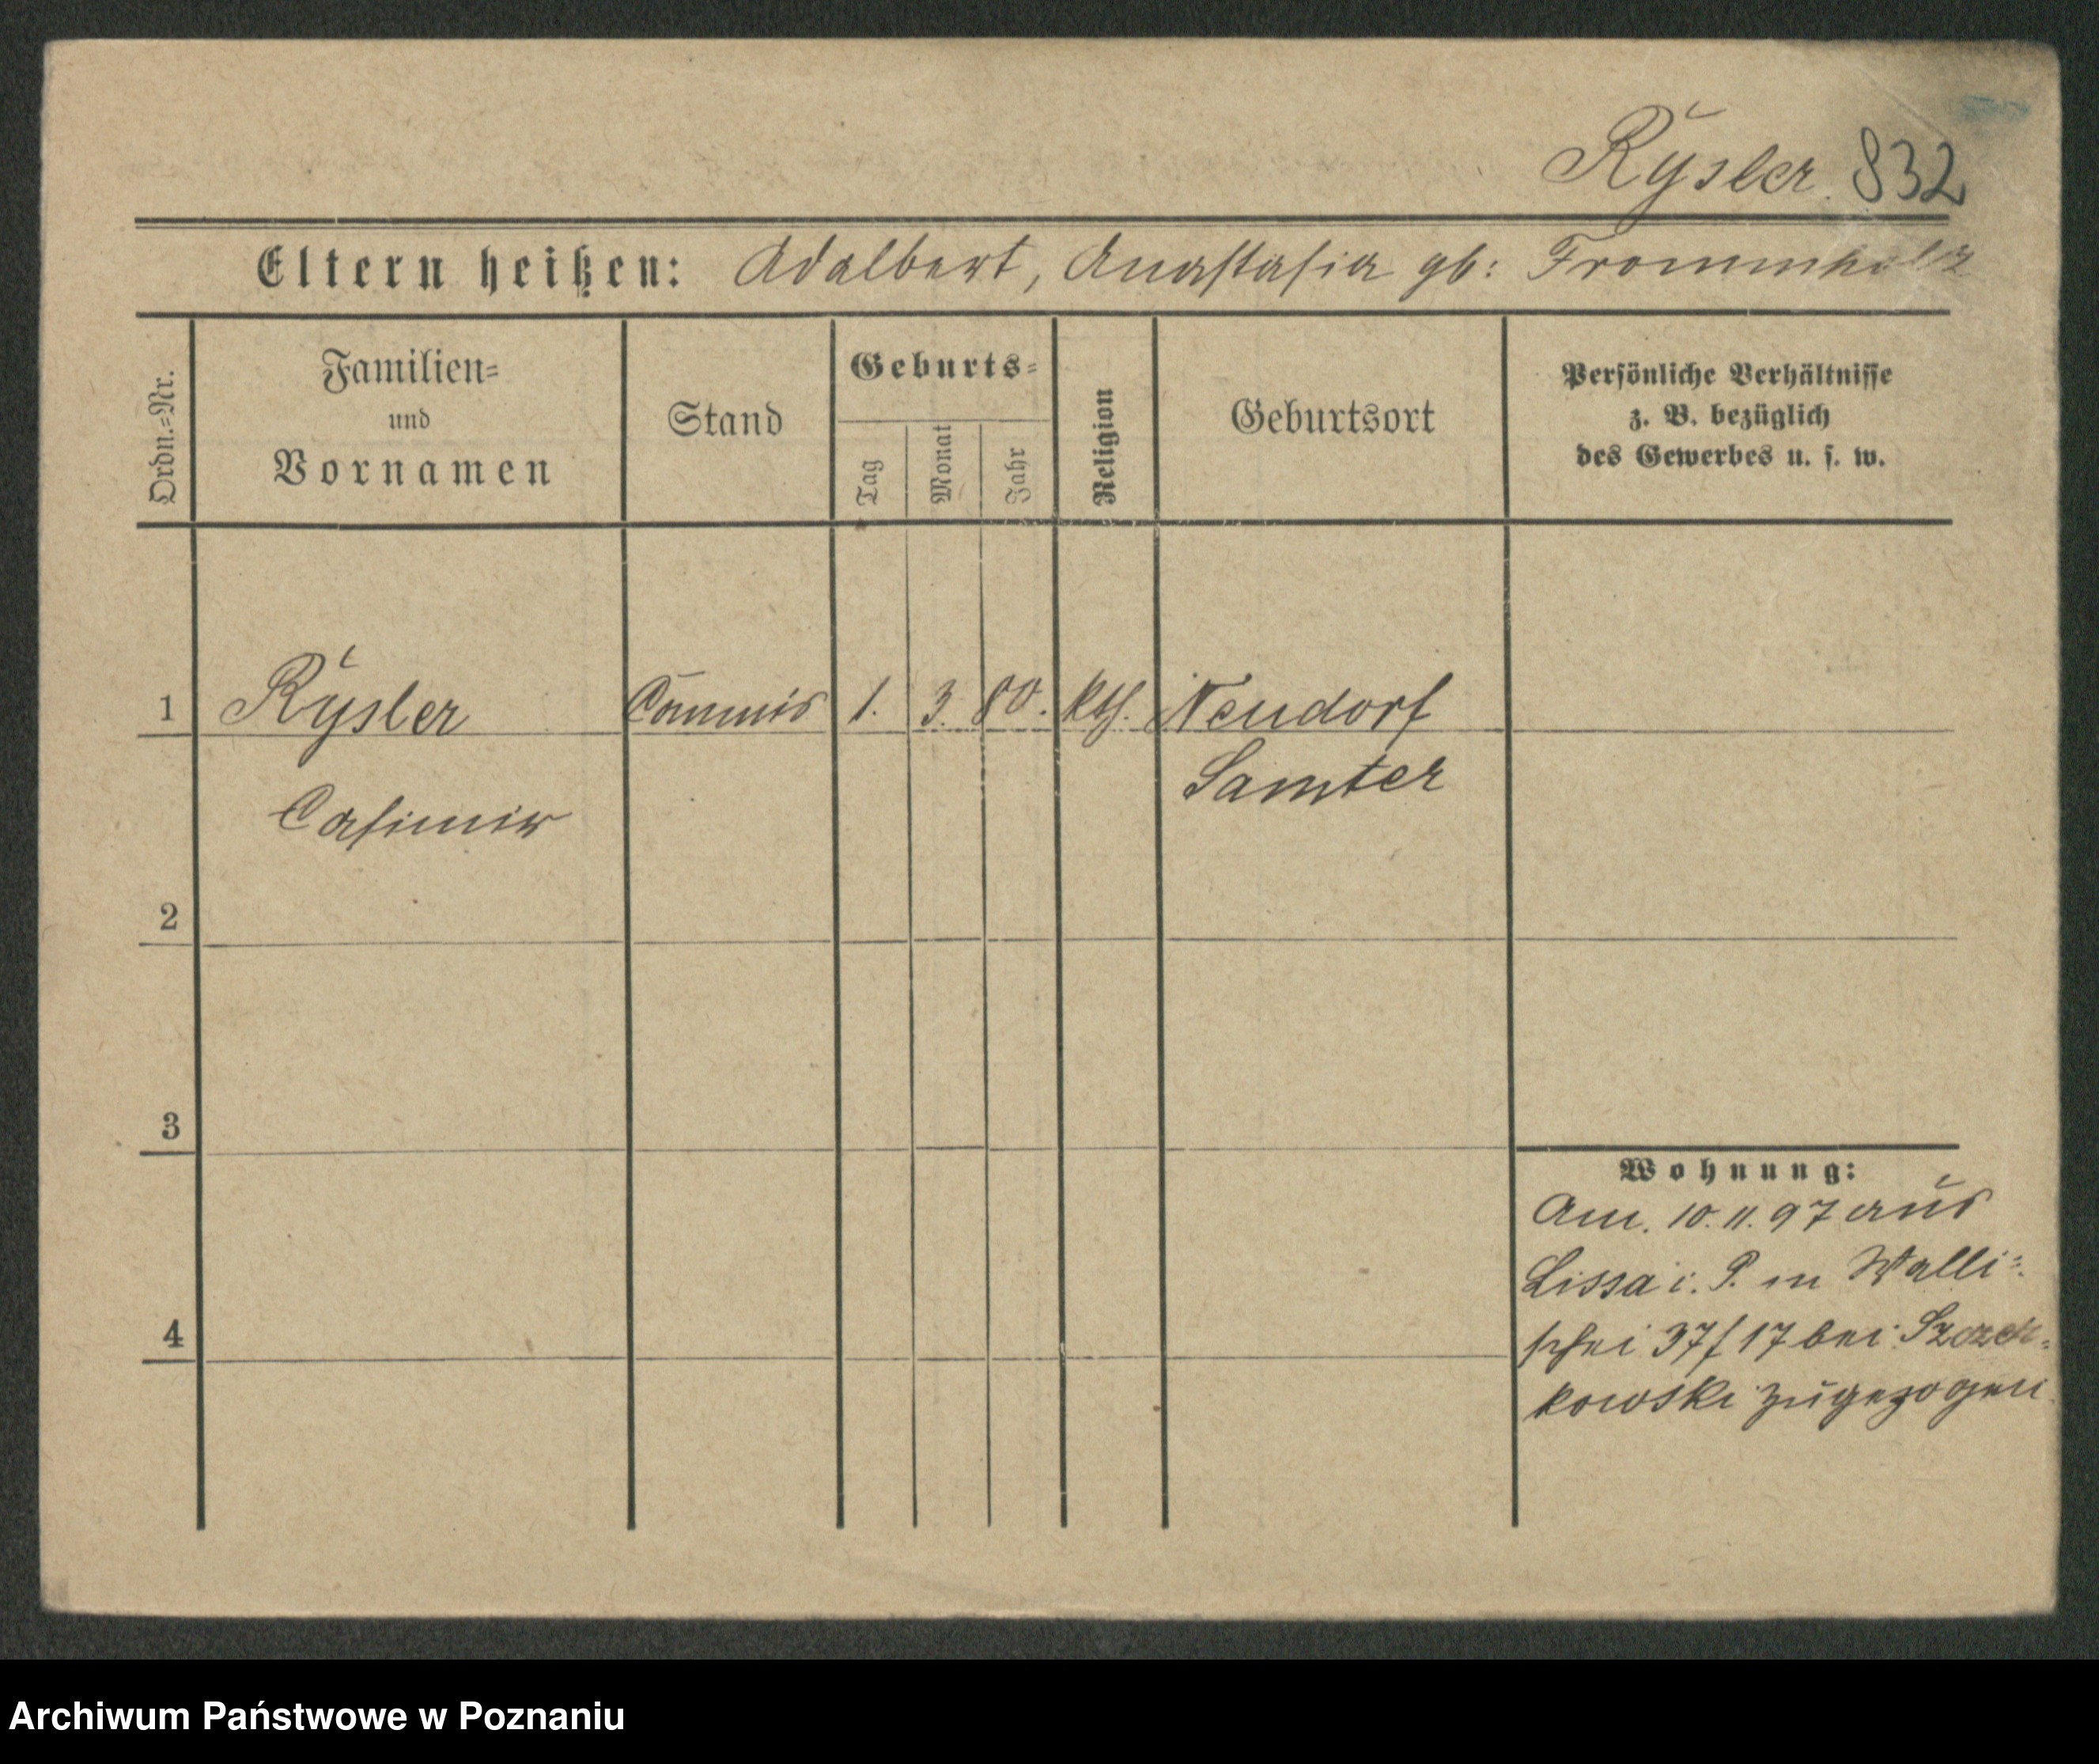 Rysler. 832
Eltern heißen: Adalbert, Anastasia gb: Frommholz
Ordn.=Nr.
Familien=
und
Vornamen
Stand
Geburts=
Tag
Monat
Jahr
Religion
Geburtsort
Persönliche Verhältnisse
z. B. bezüglich
des Gewerbes u. s. w.
1 Rysler Commis 1. 3. 80. kth. Neudorf
Samter
Casimir
2
3
Wohnung:
Am. 10. 11. 97 aus
Lissa i. P. in Walli=
4
schei 37/17 bei
kowski zugezogen
Archiwum Państwowe w Poznaniu